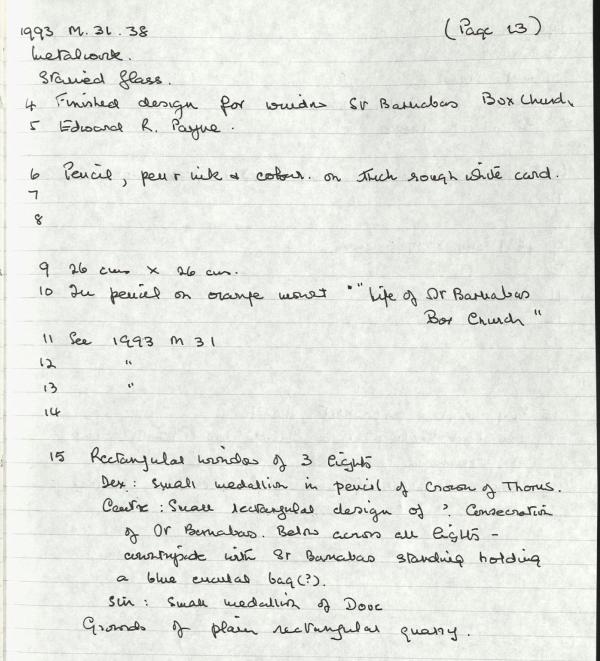 1993 M. 31. 38 (Page 13)
Metalwork.
Stained Glass.
4 Finished design for window St Barnabas Box Church
5 Edward R. Payne.
6 Pencil, pen & ink & colour. on thick rough white card.
7
8
9 26 cms x 26 cm.
10 In pencil on orange mount "Life of St Barnabas
Box Church"
11 See 1993 M 31
12 "
13 "
14
15 Rectangular window of 3 lights
Dex: Small medallion in pencil of Crown of Thorns.
Centre: Small rectangular design of ? Consecration
of St Barnabas. Below across all lights -
countryside with St Barnabas standing holding
a blue circular bag(?).
Sin: Small medallion of Dove
Grounds of plain rectangular quarry.